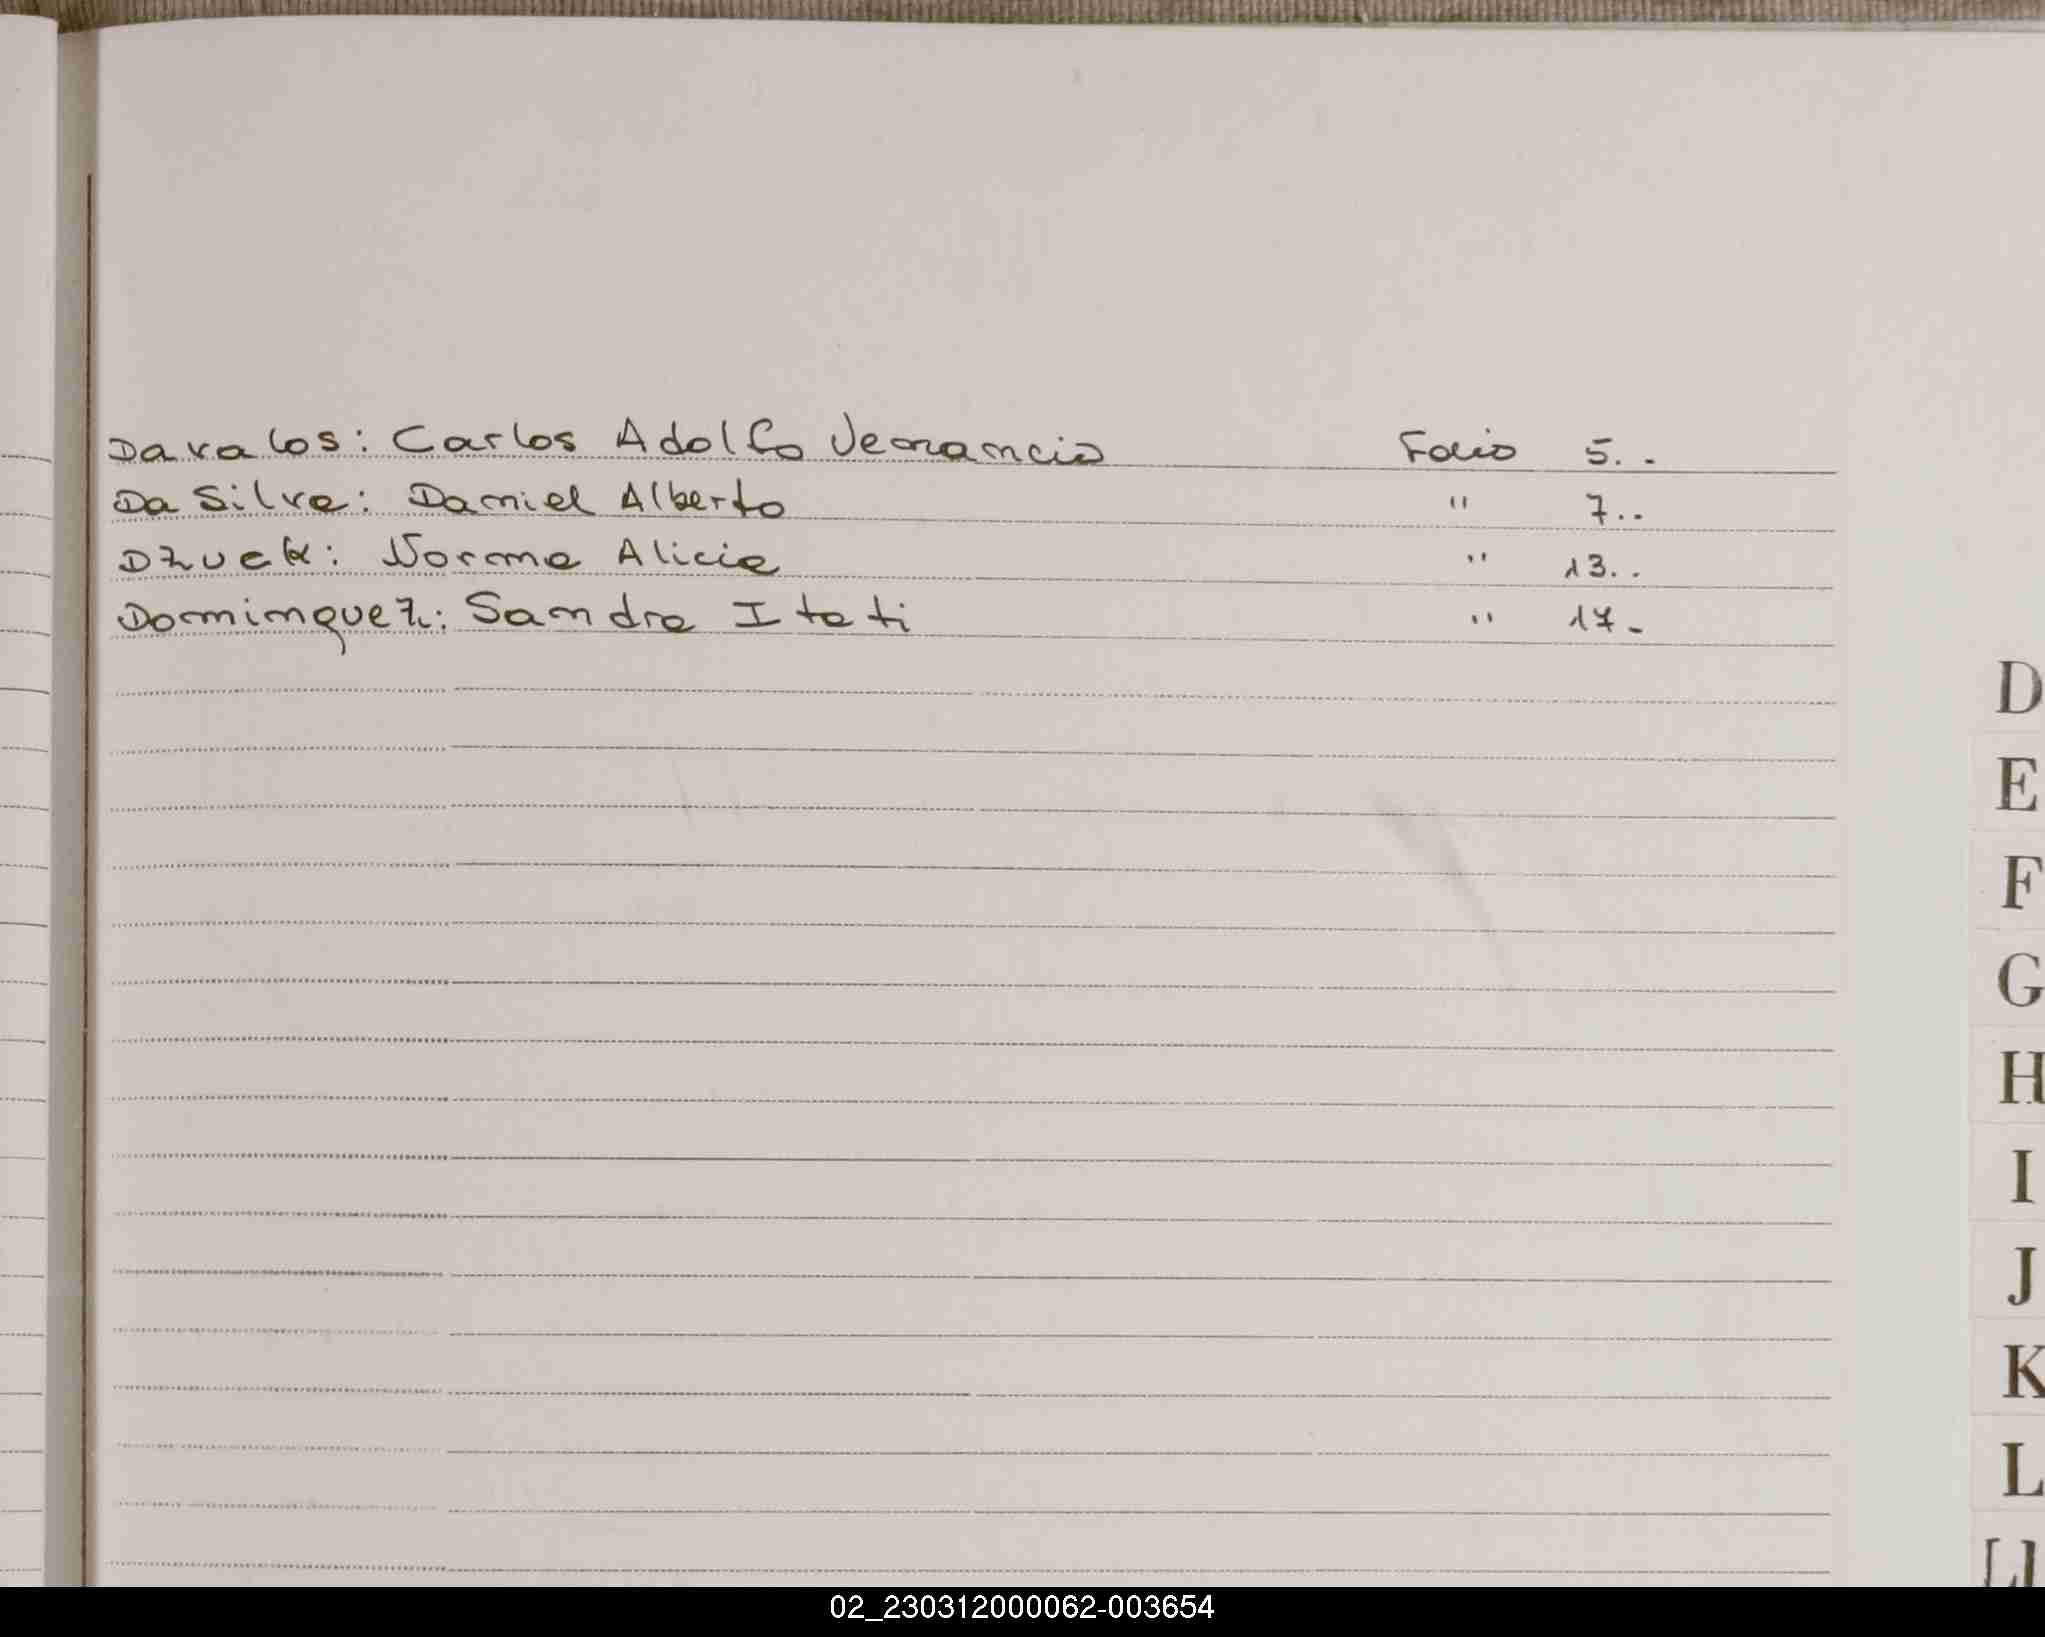 Davalos: Carlos Adolfo Venancio Folio 5..
Da Silva: Daniel Alberto " 7..
Dzuck: Norma Alicia " 13..
Dominguez: Sandra Itati " 17-
D
E
F
G
H
I
J
K
L
02_230312000062-003654